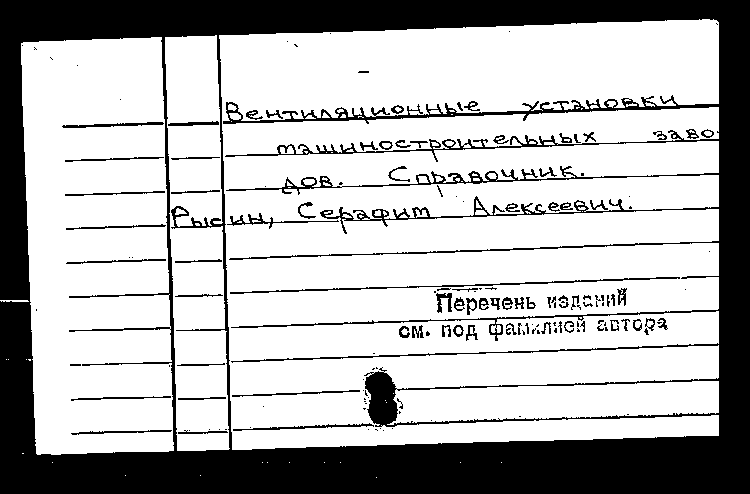 Вентиляционные установки
машиностроительных заво-
дов. Справочник.
Рысин, Серафим Алексеевич.
Перечень изданий
см. под фамилией автора